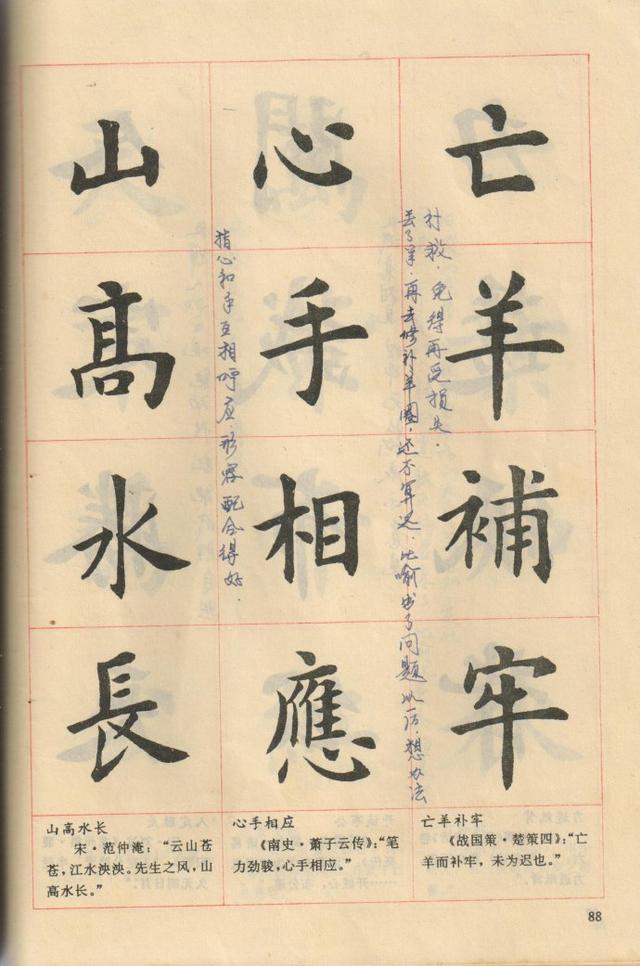 亡羊補牢
丢了羊，再去修补羊圈，还不算迟．比喻出了问题以后，想办法
补救，免得再受损失．
心手相應
指心和手互相呼应，形容配合得好．
山髙水長
山高水长
宋·范仲淹：“云山苍
苍，江水泱泱。先生之风，山
高水长。”
心手相应
《南史·萧子云传》：“笔
力劲骏，心手相应。”
亡羊补牢
《战国策·楚策四》：“亡
羊而补牢，未为迟也。”
88